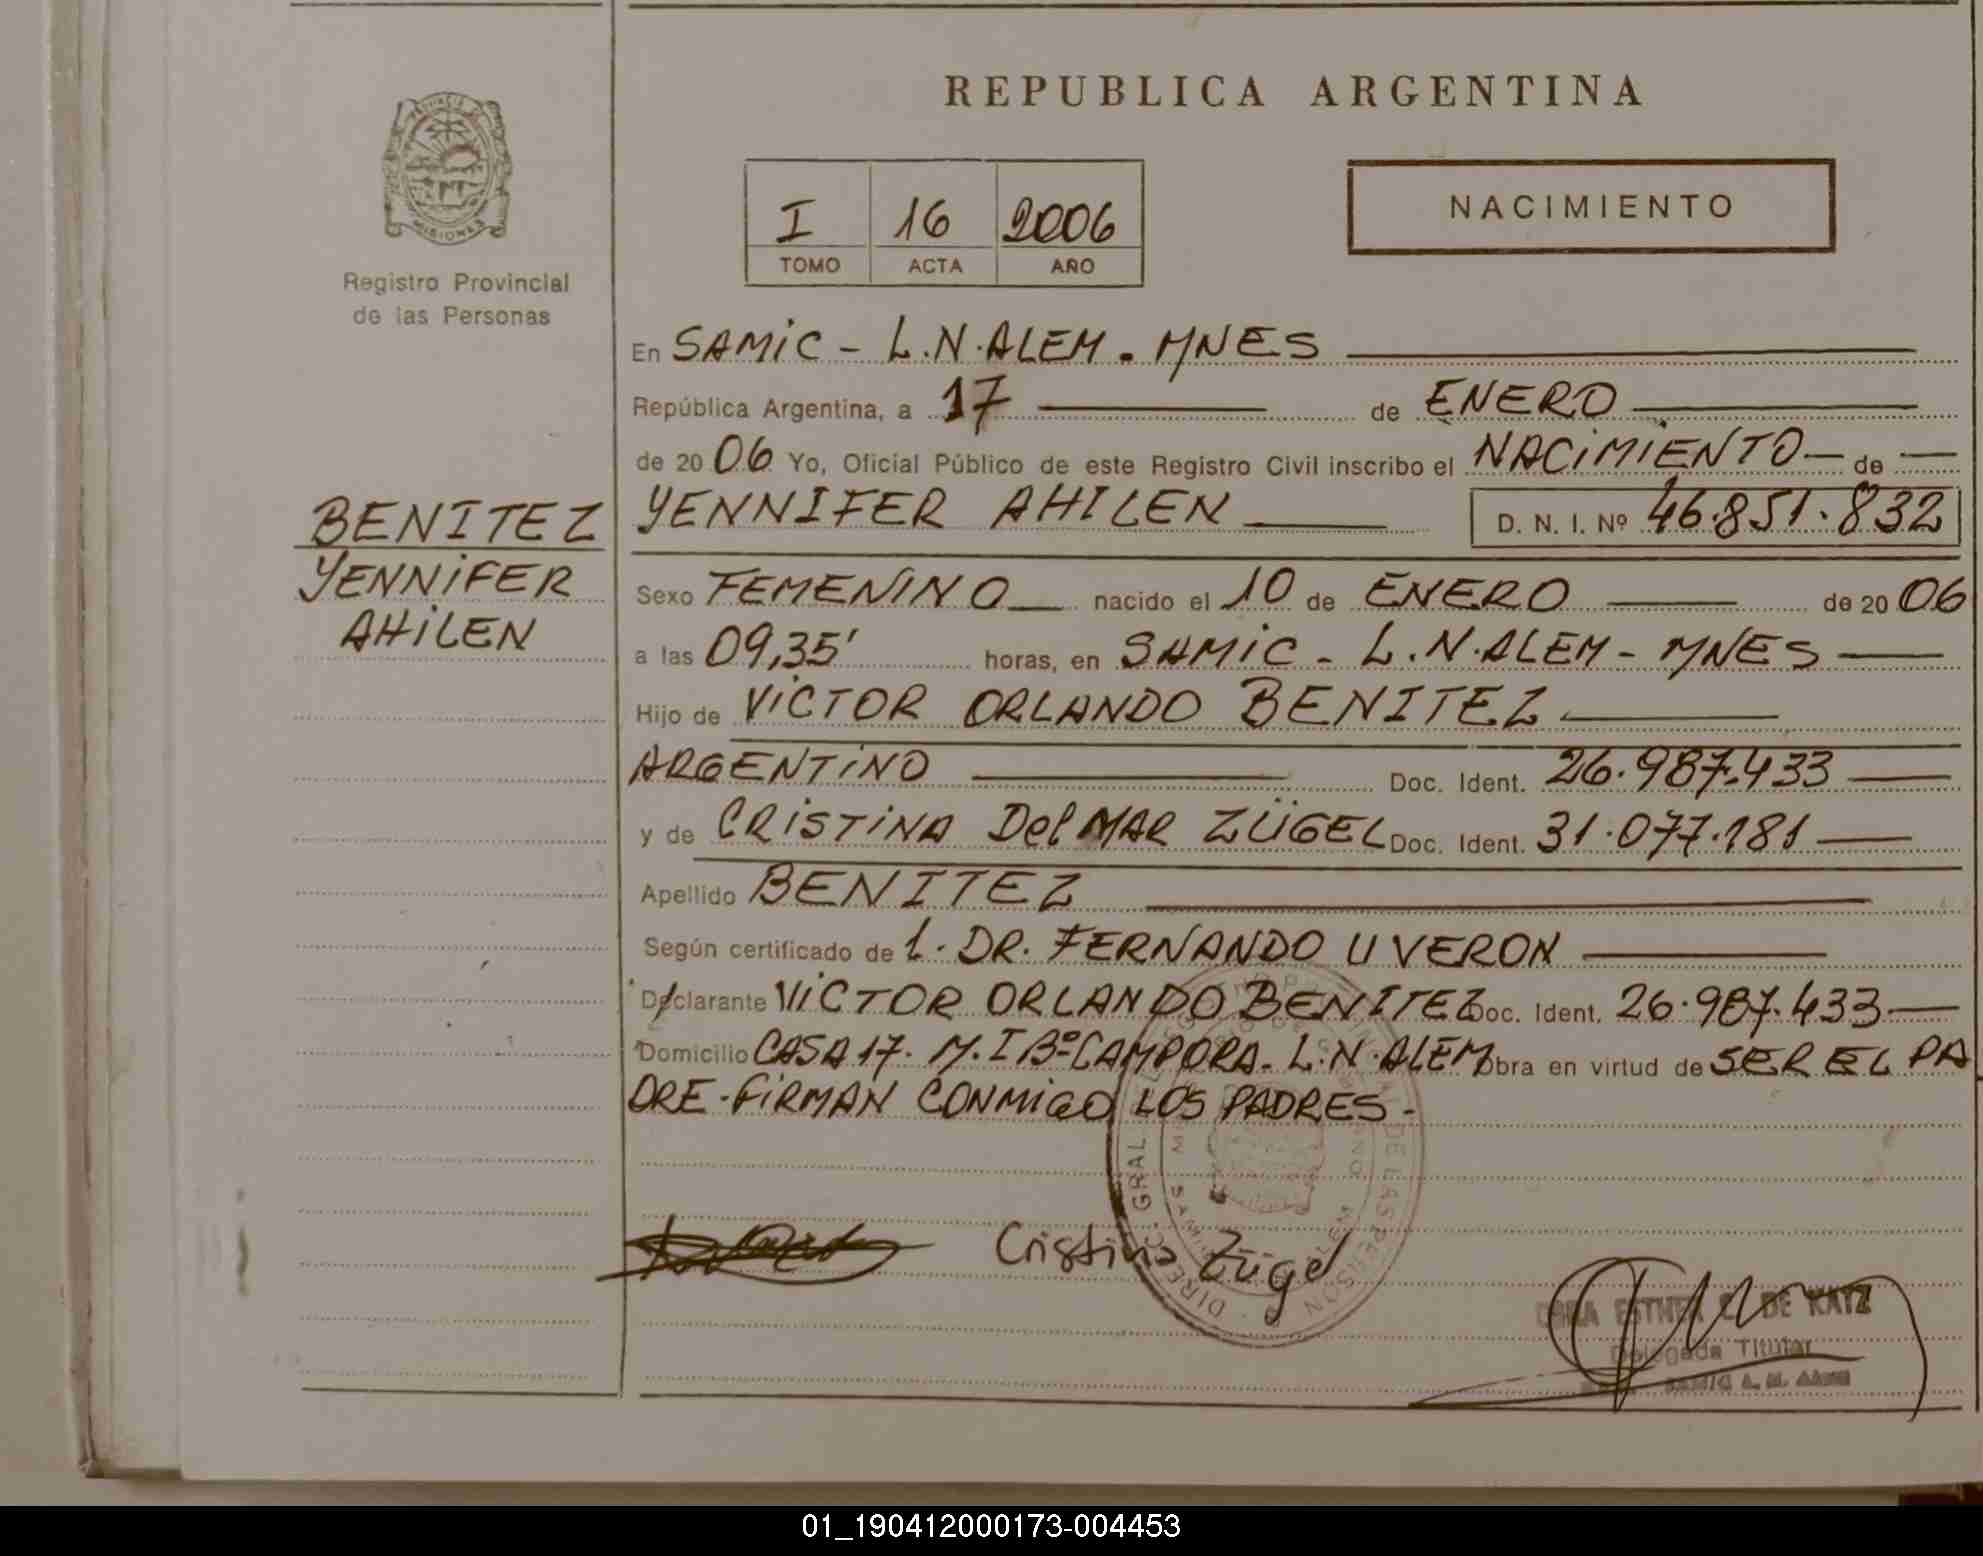 REPUBLICA ARGENTINA
MISIONES
Registro Provincial
de las Personas
I 16 2006
TOMO ACTA AÑO
NACIMIENTO
En SAMIC - L.N.ALEM. MNES
República Argentina, a 17 de ENERO
de 2006 Yo, Oficial Público de este Registro Civil inscribo el NACIMIENTO de
YENNIFER AHILEN D. N. I. Nº 46.851.832
BENITEZ
YENNIFER
AHILEN
Sexo FEMENINO nacido el 10 de ENERO de 2006
a las 09,35' horas, en SAMIC - L.N.ALEM - MNES
Hijo de VICTOR ORLANDO BENITEZ
ARGENTINO Doc. Ident. 26.987.433
y de CRISTINA Del MAR ZÜGEL Doc. Ident. 31.077.181
Apellido BENITEZ
Según certificado de L. DR. FERNANDO UVERON
Declarante VICTOR ORLANDO BENITEZ Doc. Ident. 26.987.433
Domicilio CASA 17. M.I Bº CAMPORA. L.N.ALEM Obra en virtud de SER EL PA
DRE - FIRMAN CONMIGO LOS PADRES -
Cristina Zügel
ESTHER C. DE KATZ
Delegada Titular
SAMIC L. N. ALEM
01_190412000173-004453